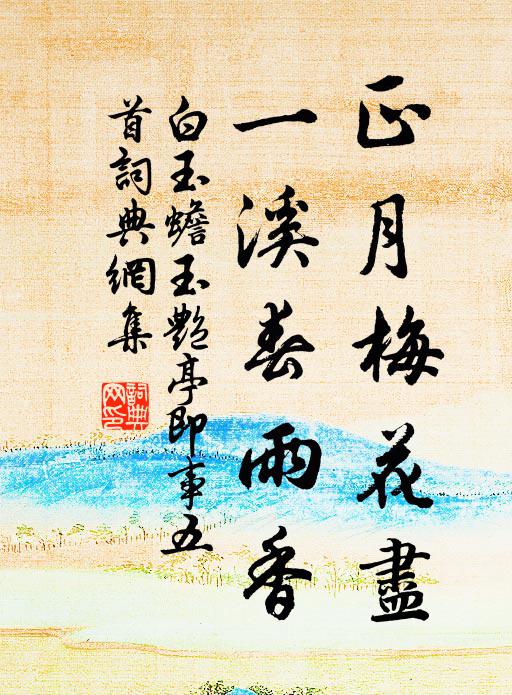 正月梅花盡
一溪春雨香
白玉蟾玉艷亭即事五
首詞典網集
詞典
网印